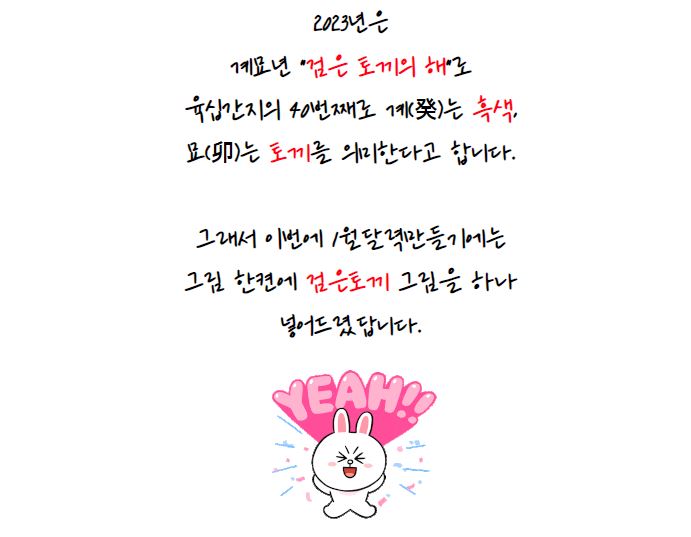 2023년은
계묘년 "검은 토끼의 해"로
육십간지의 40번째로 계(癸)는 흑색,
묘(卯)는 토끼를 의미한다고 합니다.
그래서 이번에 1월달력만들기에는
그림 한켠에 검은토끼 그림을 하나
넣어드렸답니다.
YEAH!!